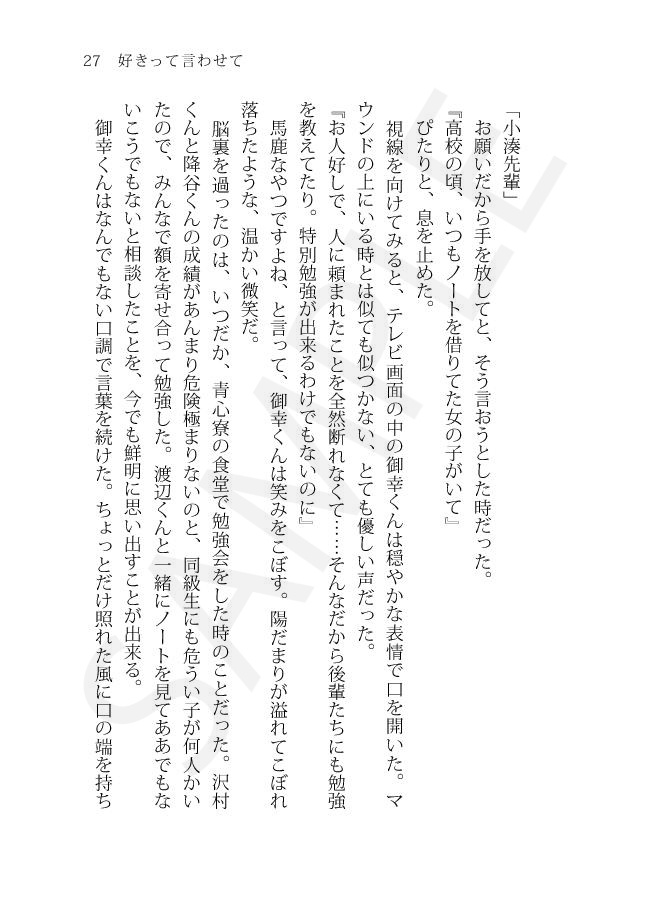 27　好きって言わせて
「小湊先輩」
　お願いだから手を放してと、そう言おうとした時だった。
『高校の頃、いつもノートを借りてた女の子がいて』
　ぴたりと、息を止めた。
　視線を向けてみると、テレビ画面の中の御幸くんは穏やかな表情で口を開いた。マ
ウンドの上にいる時とは似ても似つかない、とても優しい声だった。
『お人好しで、人に頼まれたことを全然断れなくて……そんなだから後輩たちにも勉強
を教えてたり。特別勉強が出来るわけでもないのに』
　馬鹿なやつですよね、と言って、御幸くんは笑みをこぼす。陽だまりが溢れてこぼれ
落ちたような、温かい微笑だ。
　脳裏を過ったのは、いつだか、青心寮の食堂で勉強会をした時のことだった。沢村
くんと降谷くんの成績があんまり危険極まりないのと、同級生にも危うい子が何人かい
たので、みんなで額を寄せ合って勉強した。渡辺くんと一緒にノートを見てああでもな
いこうでもないと相談したことを、今でも鮮明に思い出すことが出来る。
　御幸くんはなんでもない口調で言葉を続けた。ちょっとだけ照れた風に口の端を持ち
SAMPLE